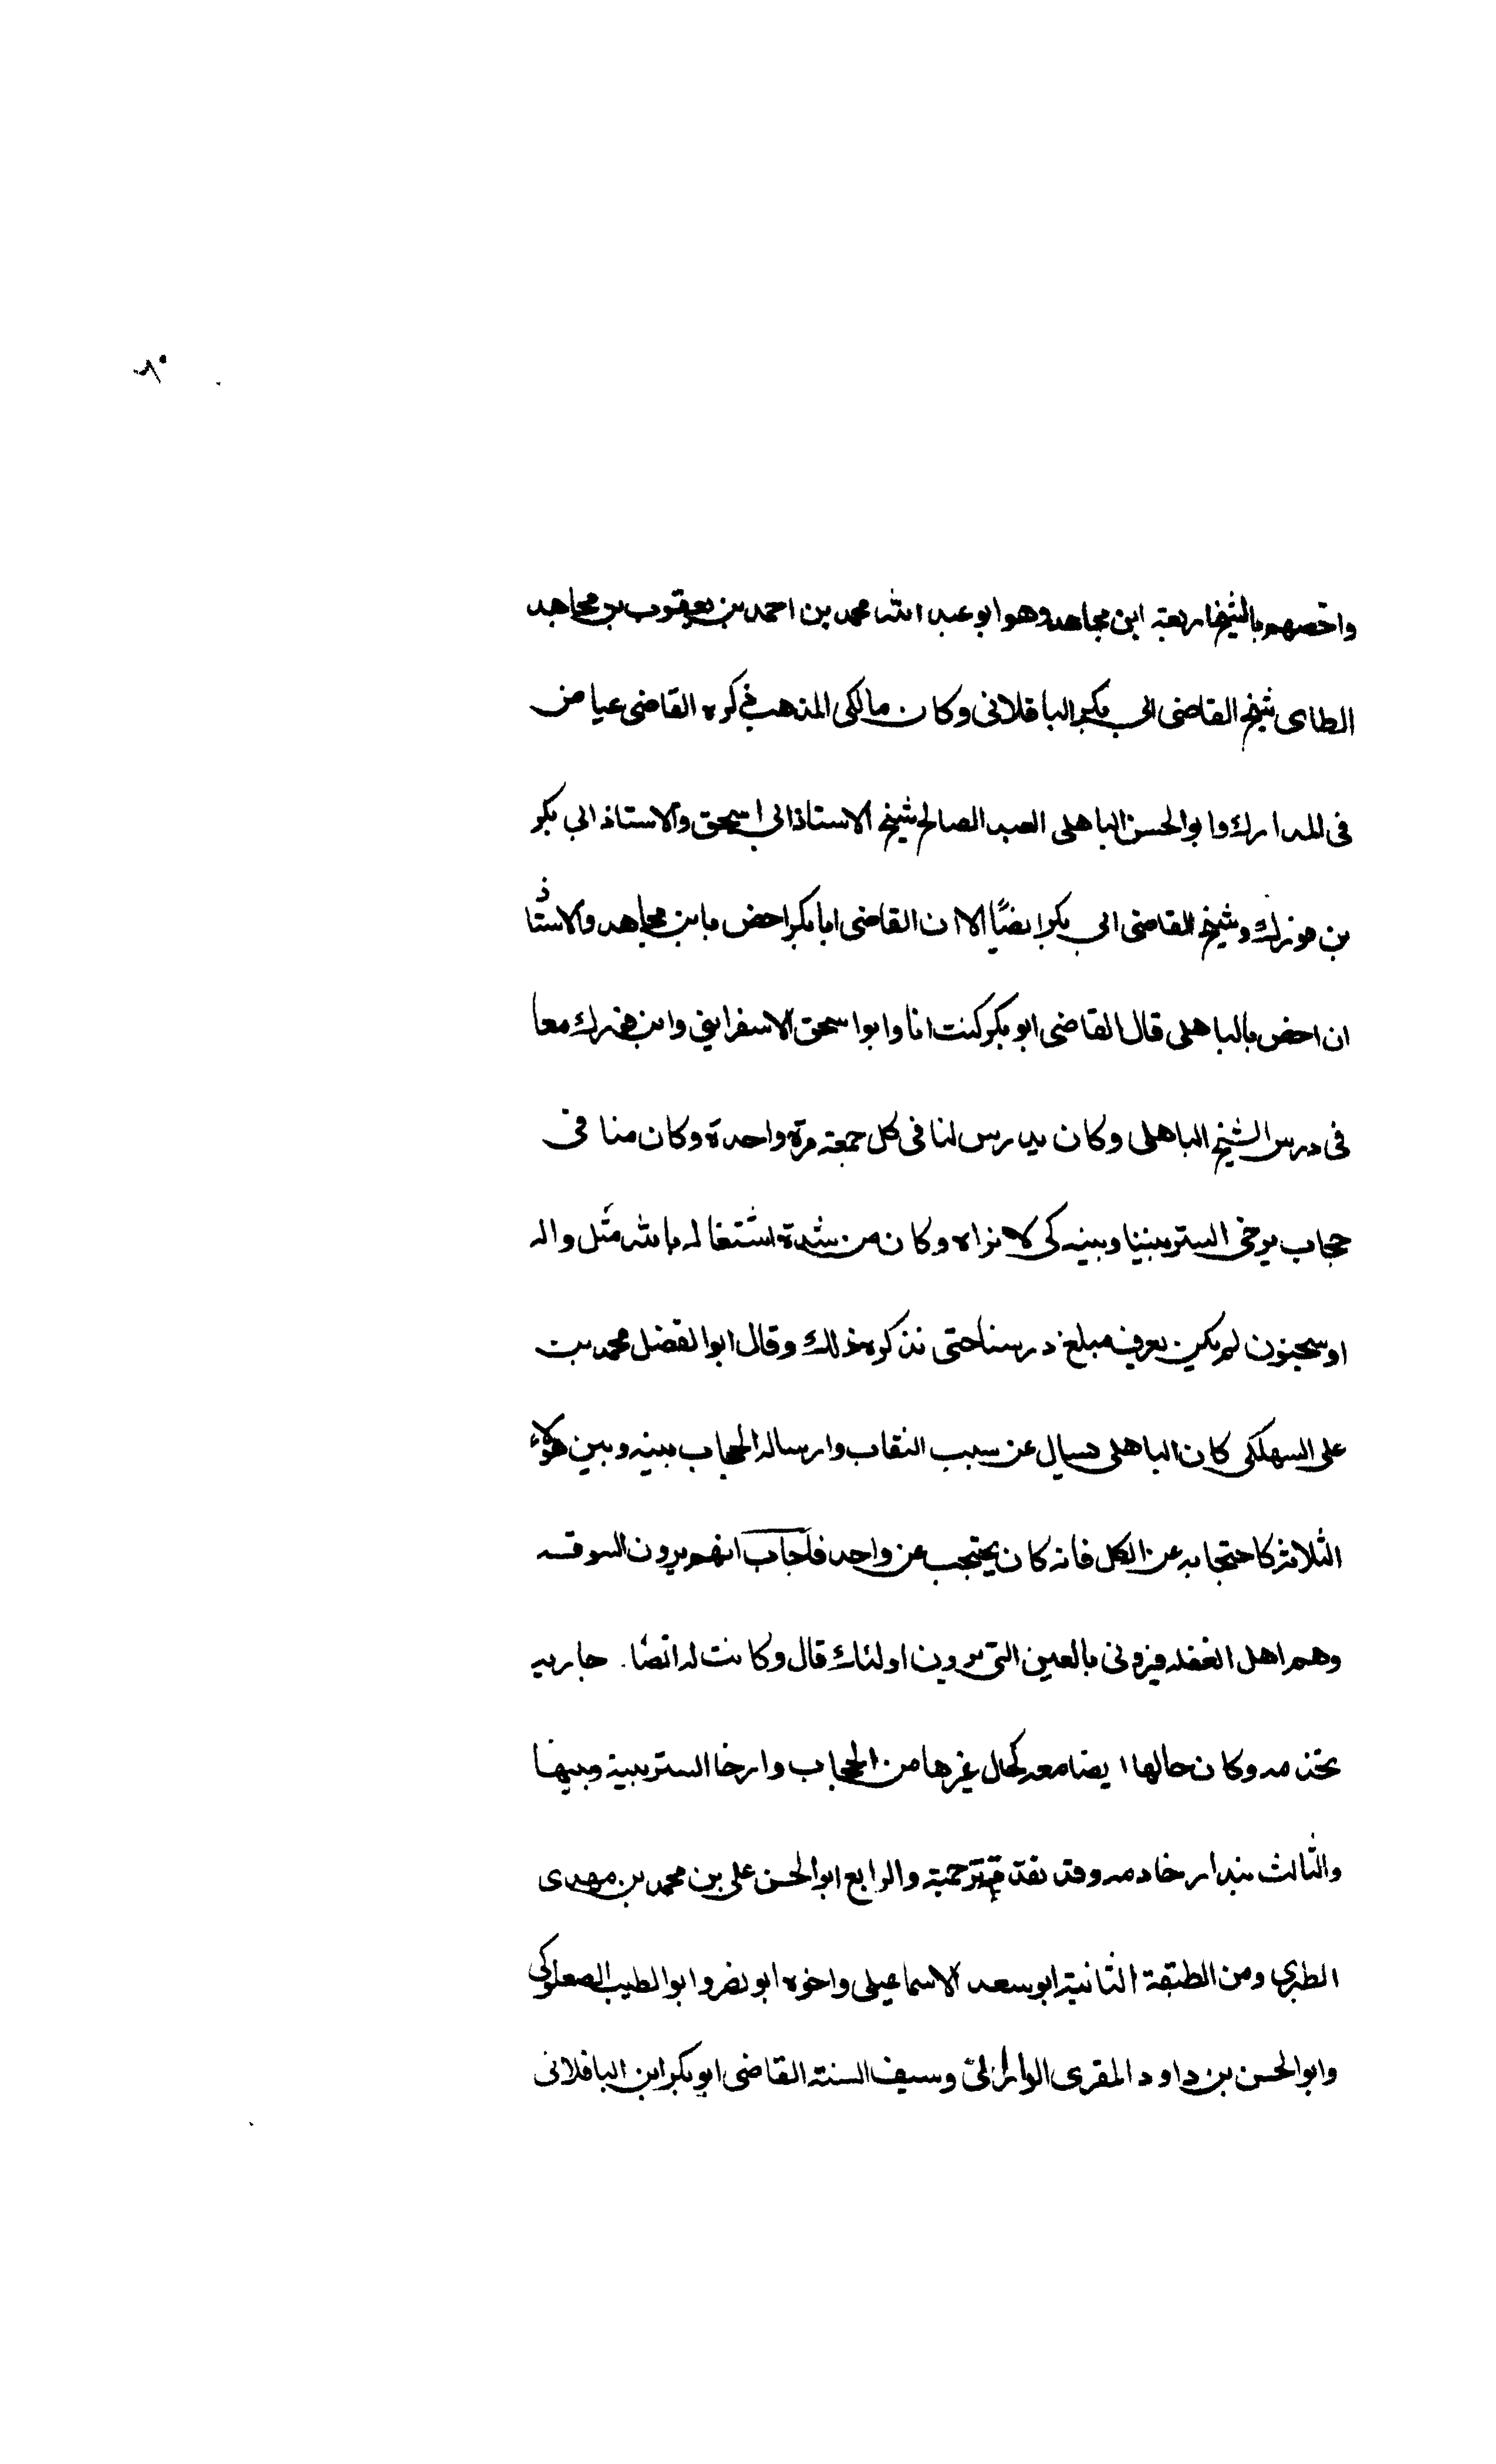 ٨٠
واخصهم بالشيخ اربعة ابن مجاهد وهو ابو عبد الله محمد بن احمد بن يعقوب بن مجاهد
الطاى شيخ القاضى ابى بكر الباقلانى وكان مالكى المذهب ذكره القاضى عياض
فى المدارك وابو الحسن الباهلى العبد الصالح شيخ الاستاذ ابى اسحق والاستاذ ابى بكر
بن فورك وشيخ القاضى ابى بكر ايضًا الا ان القاضى ابا بكر اخص بابن مجاهد والاستاذ
ان اخص بالباهلى قال القاضى ابو بكر كنت انا وابو اسحق الاسفراينى وابن فورك معا
فى درس الشيخ الباهلى وكان يدرس لنا فى كل جمعة مرة واحدة وكان منا فى
حجاب يرخى الستر بيننا وبينه كى لا نراه وكان من شدة اشتغاله بالله مثل واله
او مجنون لم يكن يعرف مبلغ درسنا حتى نذكره ذلك وقال ابو الفضل محمد بن
على السهلكى كان الباهلى يسال عن سبب النقاب وارساله الحجاب بينه وبين هؤلاء
الثلاثة كاحتجابه عن الكل فانه كان يحتجب عن واحد فاجاب انهم يرون السوقة
وهم اهل الغفله فيرونى بالعين التى يرون اولئك قال وكانت له ايضًا جاريه
تخدمه وكان حالها ايضا معه كحال غيرها من الحجاب وارخا الستر بينه وبينها
والثالث بندار خادمه وقد تقدم ترجمته والرابع ابو الحسن على بن محمد بن مهدى
الطبرى ومن الطبقة الثانية ابو سعد الاسماعيلى واخوه ابو نصر وابو الطيب الصعلوكى
وابو الحسن بن داود المقرى الدارانى وسيف السنة القاضى ابو بكر ابن الباقلانى